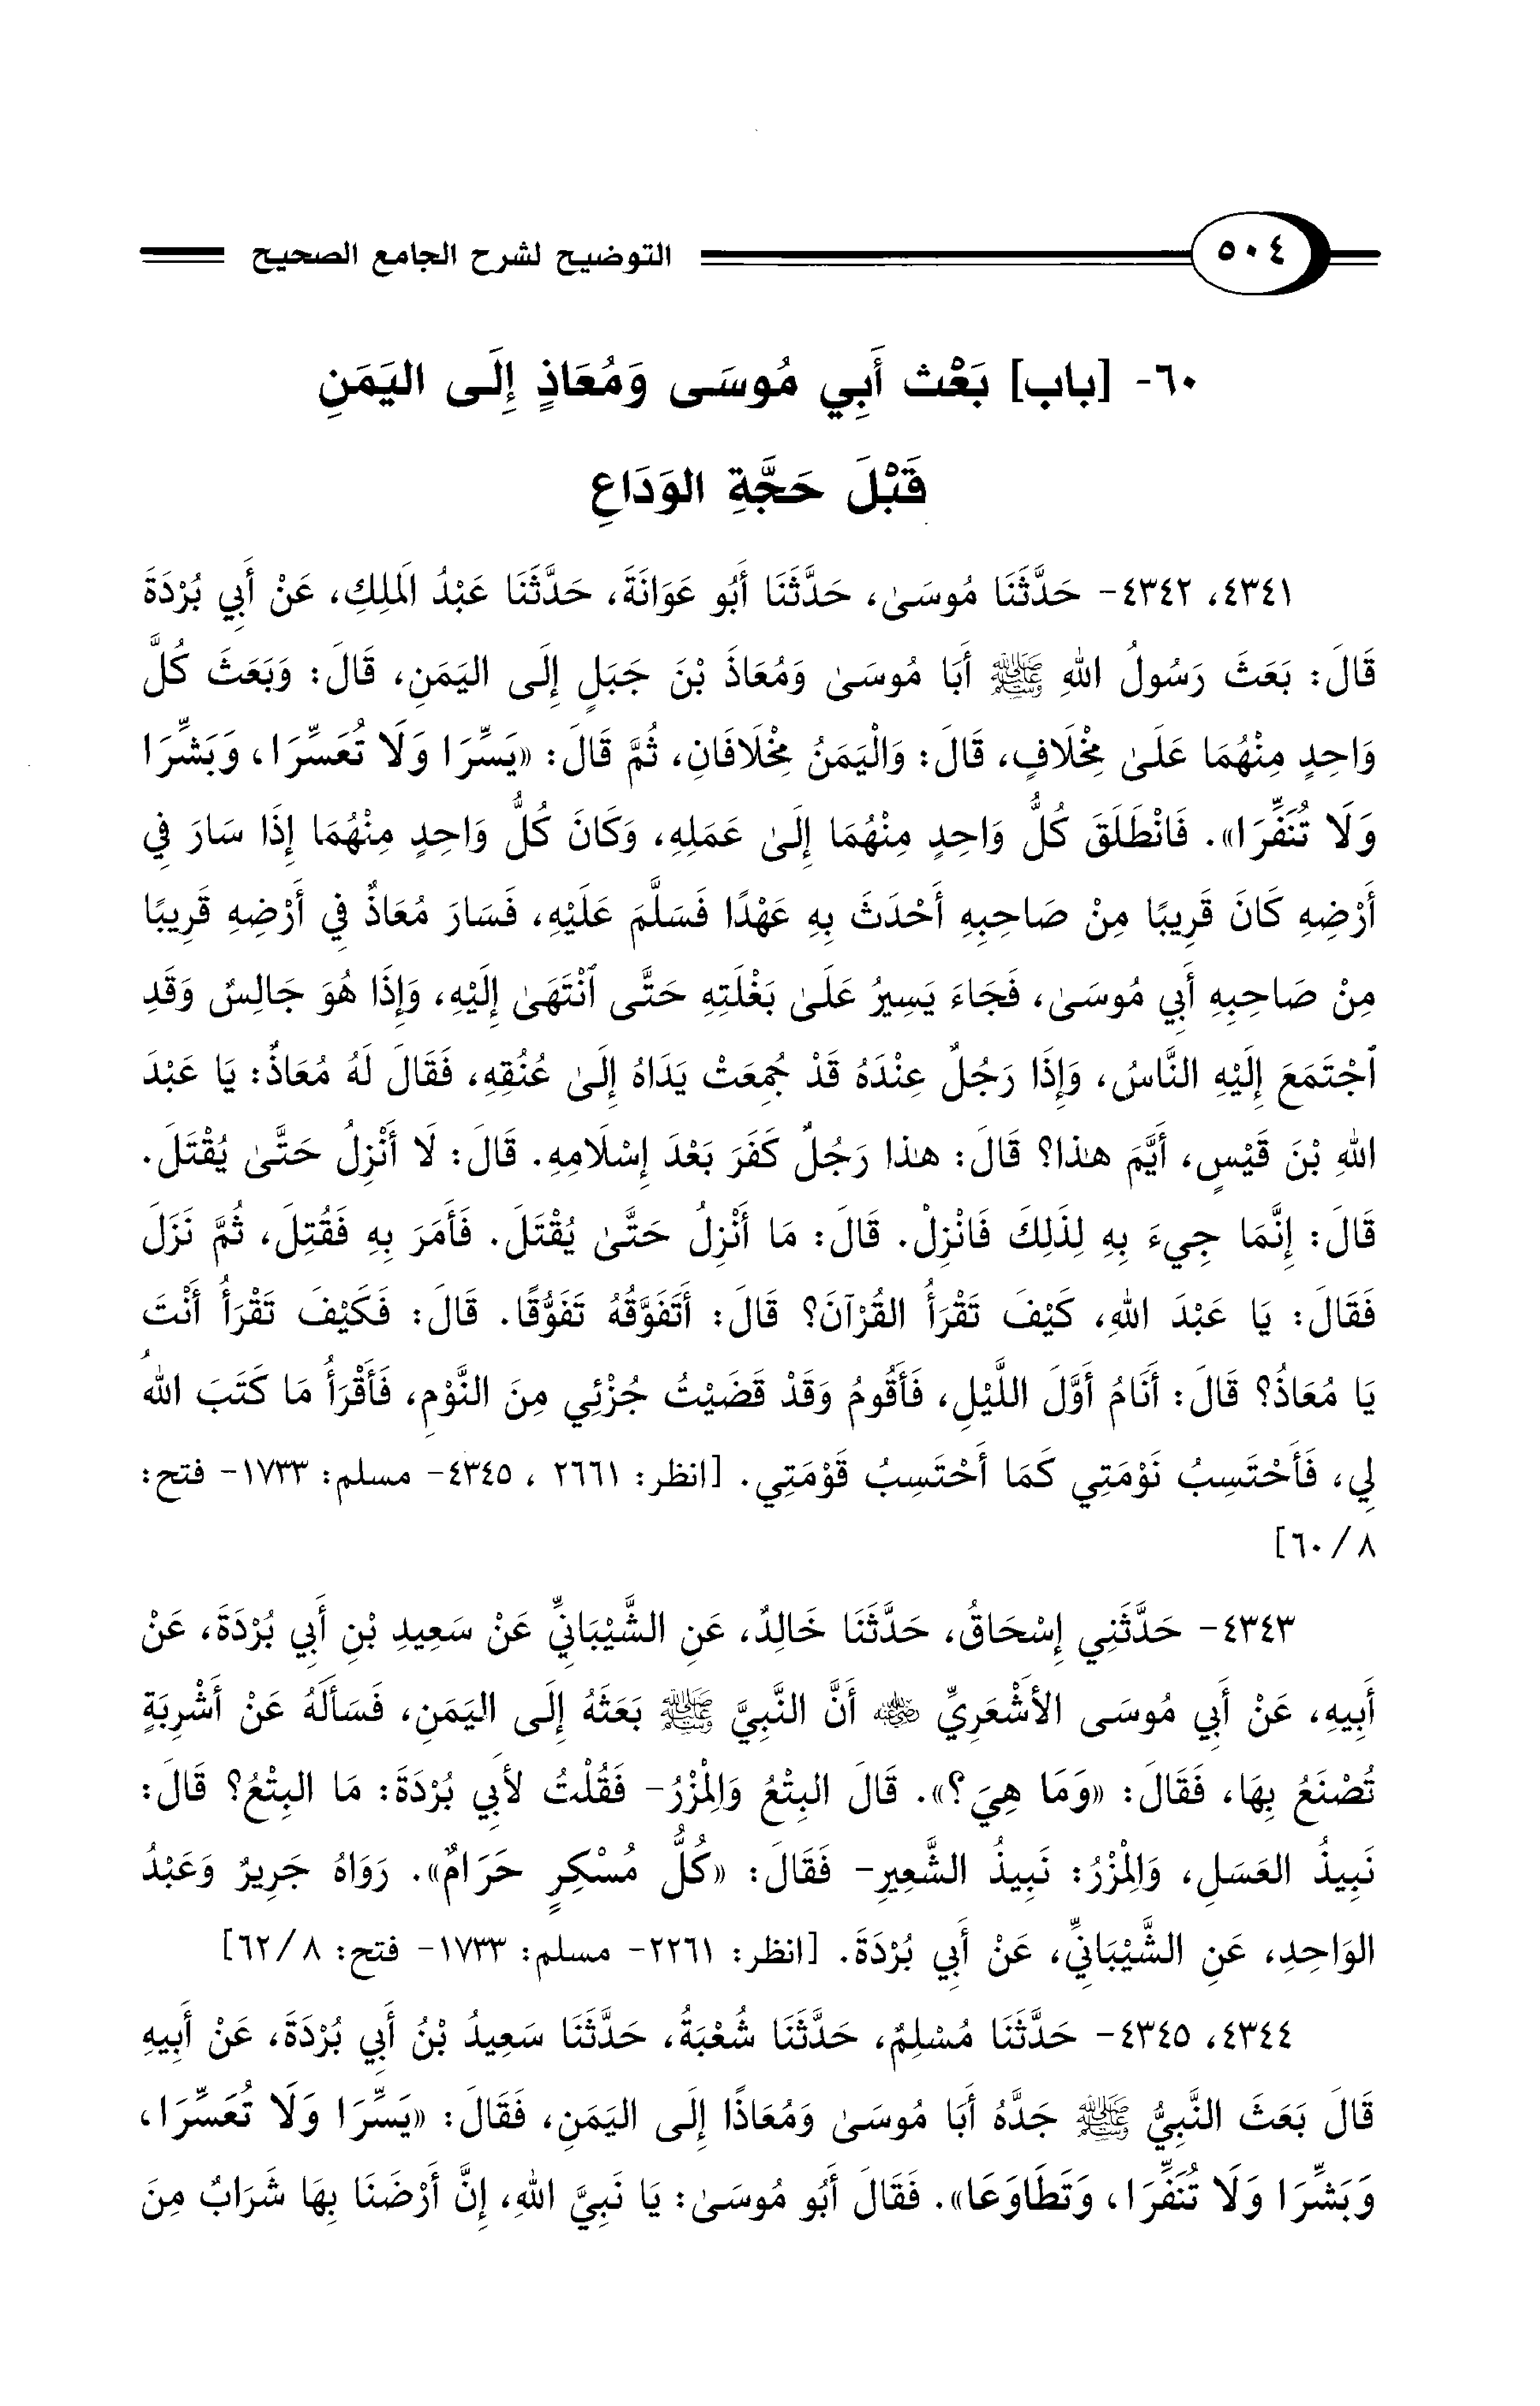 ٥٠٤ التوضيح لشرح الجامع الصحيح
٦٠- [باب] بَعْث أَبِي مُوسَى وَمُعَاذٍ إِلَى اليَمَنِ
قَبْلَ حَجَّةِ الوَدَاعِ
٤٣٤١، ٤٣٤٢- حَدَّثَنَا مُوسَىٰ، حَدَّثَنَا أَبُو عَوَانَةَ، حَدَّثَنَا عَبْدُ الَملِكِ، عَنْ أَبِي بُرْدَةَ
قَالَ: بَعَثَ رَسُولُ اللهِ ﷺ أَبَا مُوسَىٰ وَمُعَاذَ بْنَ جَبَلٍ إِلَى اليَمَنِ، قَالَ: وَبَعَثَ كُلَّ
وَاحِدٍ مِنْهُمَا عَلَىٰ مِخْلَافٍ، قَالَ: وَالْيَمَنُ مِخْلَافَانِ، ثُمَّ قَالَ: «يَسِّرَا وَلَا تُعَسِّرَا، وَبَشِّرَا
وَلَا تُنَفِّرَا». فَانْطَلَقَ كُلُّ وَاحِدٍ مِنْهُمَا إِلَىٰ عَمَلِهِ، وَكَانَ كُلُّ وَاحِدٍ مِنْهُمَا إِذَا سَارَ فِي
أَرْضِهِ كَانَ قَرِيبًا مِنْ صَاحِبِهِ أَحْدَثَ بِهِ عَهْدًا فَسَلَّمَ عَلَيْهِ، فَسَارَ مُعَاذٌ فِي أَرْضِهِ قَرِيبًا
مِنْ صَاحِبِهِ أَبِي مُوسَىٰ، فَجَاءَ يَسِيرُ عَلَىٰ بَغْلَتِهِ حَتَّى ٱنْتَهَىٰ إِلَيْهِ، وَإِذَا هُوَ جَالِسٌ وَقَدِ
ٱجْتَمَعَ إِلَيْهِ النَّاسُ، وَإِذَا رَجُلٌ عِنْدَهُ قَدْ جُمِعَتْ يَدَاهُ إِلَىٰ عُنُقِهِ، فَقَالَ لَهُ مُعَاذٌ: يَا عَبْدَ
اللهِ بْنَ قَيْسٍ، أَيَّمَ هٰذا؟ قَالَ: هٰذا رَجُلٌ كَفَرَ بَعْدَ إِسْلَامِهِ. قَالَ: لَا أَنْزِلُ حَتَّىٰ يُقْتَلَ.
قَالَ: إِنَّمَا جِيءَ بِهِ لِذَلِكَ فَانْزِلْ. قَالَ: مَا أَنْزِلُ حَتَّىٰ يُقْتَلَ. فَأَمَرَ بِهِ فَقُتِلَ، ثُمَّ نَزَلَ
فَقَالَ: يَا عَبْدَ اللهِ، كَيْفَ تَقْرَأُ القُرْآنَ؟ قَالَ: أَتَفَوَّقُهُ تَفَوُّقًا. قَالَ: فَكَيْفَ تَقْرَأُ أَنْتَ
يَا مُعَاذُ؟ قَالَ: أَنَامُ أَوَّلَ اللَّيْلِ، فَأَقُومُ وَقَدْ قَضَيْتُ جُزْئِي مِنَ النَّوْمِ، فَأَقْرَأُ مَا كَتَبَ اللهُ
لِي، فَأَحْتَسِبُ نَوْمَتِي كَمَا أَحْتَسِبُ قَوْمَتِي. [انظر: ٢٦٦١ ، ٤٣٤٥- مسلم: ١٧٣٣- فتح:
٨/ ٦٠]
٤٣٤٣- حَدَّثَنِي إِسْحَاقُ، حَدَّثَنَا خَالِدٌ، عَنِ الشَّيْبَانِيِّ عَنْ سَعِيدِ بْنِ أَبِي بُرْدَةَ، عَنْ
أَبِيهِ، عَنْ أَبِي مُوسَى الأَشْعَرِيِّ رضي الله عنه أَنَّ النَّبِيَّ ﷺ بَعَثَهُ إِلَى اليَمَنِ، فَسَأَلَهُ عَنْ أَشْرِبَةٍ
تُصْنَعُ بِهَا، فَقَالَ: «وَمَا هِيَ؟». قَالَ البِتْعُ وَالْمِزْرُ- فَقُلْتُ لأَبِي بُرْدَةَ: مَا البِتْعُ؟ قَالَ:
نَبِيذُ العَسَلِ، وَالْمِزْرُ: نَبِيذُ الشَّعِيرِ- فَقَالَ: «كُلُّ مُسْكِرٍ حَرَامٌ». رَوَاهُ جَرِيرٌ وَعَبْدُ
الوَاحِدِ، عَنِ الشَّيْبَانِيِّ، عَنْ أَبِي بُرْدَةَ. [انظر: ٢٢٦١- مسلم: ١٧٣٣- فتح: ٨/ ٦٢]
٤٣٤٤، ٤٣٤٥- حَدَّثَنَا مُسْلِمٌ، حَدَّثَنَا شُعْبَةُ، حَدَّثَنَا سَعِيدُ بْنُ أَبِي بُرْدَةَ، عَنْ أَبِيهِ
قَالَ بَعَثَ النَّبِيُّ ﷺ جَدَّهُ أَبَا مُوسَىٰ وَمُعَاذًا إِلَى اليَمَنِ، فَقَالَ: «يَسِّرَا وَلَا تُعَسِّرَا،
وَبَشِّرَا وَلَا تُنَفِّرَا، وَتَطَاوَعَا». فَقَالَ أَبُو مُوسَىٰ: يَا نَبِيَّ اللهِ، إِنَّ أَرْضَنَا بِهَا شَرَابٌ مِنَ